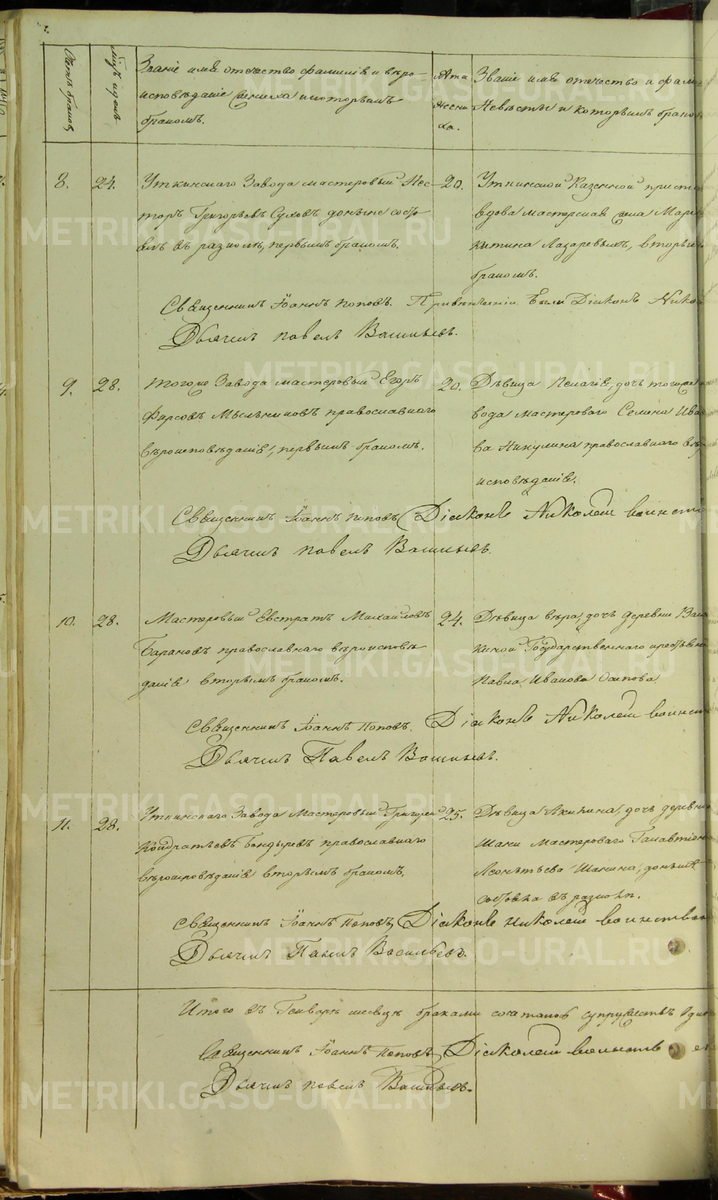 Счетъ браковъ
Мцъ и день
Званіе имя отечество фамилія и вѣро
исповѣданіе жениха и которымъ
бракомъ.
Лѣта
жени
ха.
Званіе имя отечество и фами
Невѣсты и которымъ брако
8. 24.
Уткинскаго Завода мастеровый Нес
торъ Григорьевъ Суловъ донынѣ состо
въ разколѣ, первымъ бракомъ.
20.
Уткинской Казенной прист
вдова мастерская жена Мар
китина Лазаревымъ, вторы
бракомъ.
Священникъ Іоаннъ Поповъ. При вѣнчаніи были Діаконъ Никол
Дьячекъ Павелъ Васильевъ.
9. 28.
Тогоже Завода мастеровый Егоръ
Фирсовъ Мѣльниковъ православнаго
вѣроисповѣданія, первымъ бракомъ.
20.
Дѣвица Пелагія, дочь тогоже за
вода мастероваго Семена Ива
ва Никулина православнаго вѣро
исповѣданія.
Священникъ Іоаннъ Поповъ, Діаконъ Николай воинств
Дьячекъ Павелъ Васильевъ.
10. 28.
Мастеровый Евстратъ Михайловъ
Барановъ православнаго вѣроисповѣ
данія вторымъ бракомъ.
24.
Дѣвица вѣра, дочь деревни
кской Государственного крестьян
Павла Иванова Осипова
Священникъ Іоаннъ Поповъ. Діаконъ Николай воинств
Дьячекъ Павелъ Васильевъ.
11. 28.
Уткинскаго Завода Мастеровый Григорей
Кондратьевъ Бондыревъ православнаго
вѣроисповѣданія вторымъ бракомъ,
25.
Дѣвица Акилина, дочь деревни
Мастероваго Галактіона
Леонтьева Шанина, донынѣ
состояла въ разколѣ.
Священникъ Іоаннъ Поповъ, Діаконъ Николай воинствен
Дьячекъ Павелъ Васильевъ.
Итого въ Генварѣ месяцѣ браками сочетаныхъ супружествъ Один
Священникъ Іоаннъ Поповъ, Діаконъ
Дьячекъ Павелъ Васильевъ.
METRIKI.GASO-URAL.RU